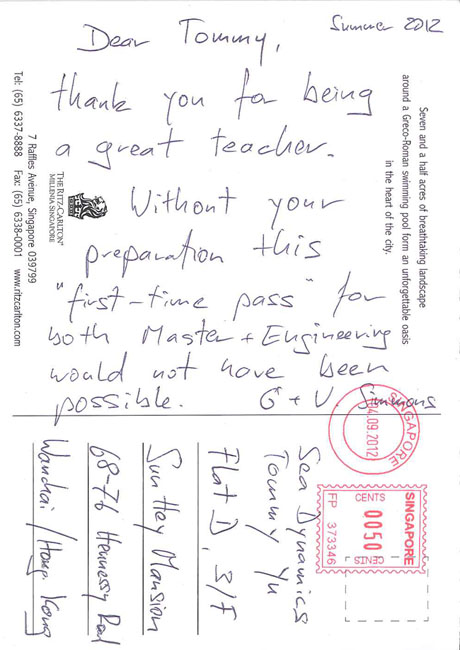 Summer 2012
Dear Tommy,
thank you for being
a great teacher.
Without your
preparation this
"first-time pass" for
both Master + Engineering
would not have been
possible. G + U Simmons
Seven and a half acres of breathtaking landscape
around a Greco-Roman swimming pool form an unforgettable oasis
in the heart of the city.
THE RITZ-CARLTON®
MILLENIA SINGAPORE
7 Raffles Avenue, Singapore 039799
Tel: (65) 6337-8888 Fax: (65) 6338-0001 www.ritzcarlton.com
SINGAPORE
04.09.2012
SINGAPORE
SINGAPORE
CENTS
0050
CENTS
FP 373346
Sea Dynamics
Tommy Yu
Flat D, 3/F
Sun Hey Mansion
68-76 Hennessy Road
Wanchai / Hong Kong